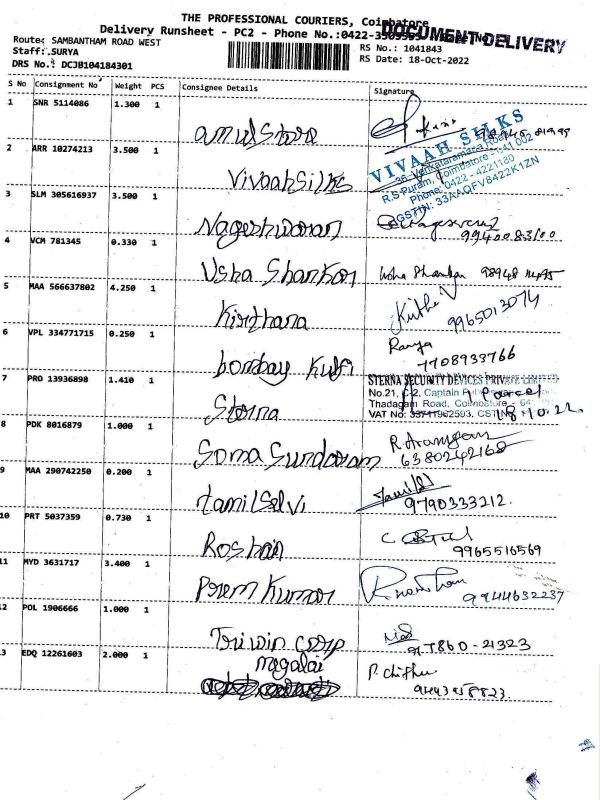 THE PROFESSIONAL COURIERS, Coimbatore
Delivery Runsheet - PC2 - Phone No.:0422-
DOCUMENT DELIVERY
Route: SAMBANTHAM ROAD WEST
RS No.: 1041843
Staff: SURYA
RS Date: 18-Oct-2022
DRS No.: DCJB104184301
S No Consignment No Weight PCS Consignee Details Signature
1 SNR 5114086 1.300 1 amul Store
2 ARR 10274213 3.500 1 Vivaah Silks
VIVAAH SILKS
Venkataramana Road
R.S Puram, Coimbatore - 641 002
Phone: 0422 - 4221180
GSTIN: 33AAQFV8422K1ZN
3 SLM 305616937 3.500 1 Nageshwaran
4 VCM 781345 0.330 1 Usha Shankar
5 MAA 566637802 4.250 1 Kirthana
9965013074
6 VPL 334771715 0.250 1 bombay Kulfi
Ranya
7708933766
7 PRO 13936898 1.410 1 Sterna
STERNA SECURITY DEVICES PRIVATE LIMITED
No.21, C-2, Captain Parcel
Thadagam Road, Coimbatore - 64
VAT No: 33711962593, CST 18.10.22
8 PDK 8016879 1.000 1 Soma Sundaram
6380242168
9 MAA 290742250 0.200 1 tamilSelvi
9790333212.
10 PRT 5037359 0.730 1 Roshan
9965516569
11 MYD 3631717 3.400 1 Prem Kumar
9944632237
12 POL 1906666 1.000 1 Triwin corp
13 EDQ 12261603 2.000 1 megalai